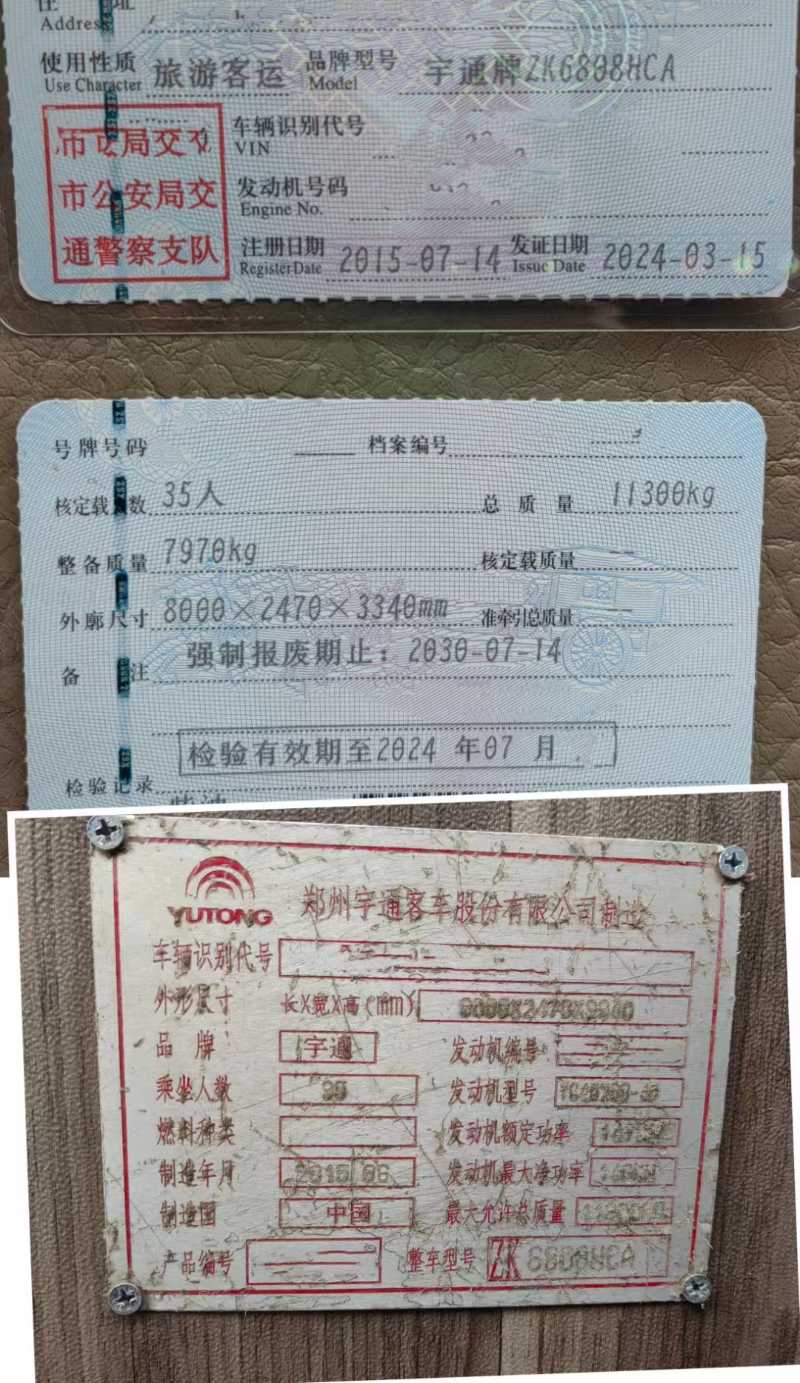 住 址
Address
使用性质 旅游客运 品牌型号 宇通牌ZK6808HCA
Use Character Model
车辆识别代号
VIN
市公安局交
通警察支队
发动机号码
Engine No.
注册日期 2015-07-14 发证日期 2024-03-15
Register Date Issue Date
号牌号码 档案编号
核定载人数 35人 总质量 11300kg
整备质量 7970kg 核定载质量 --
外廓尺寸 8000×2470×3340mm 准牵引总质量 --
备注 强制报废期止：2030-07-14
检验有效期至2024 年07 月
检验记录
YUTONG 郑州宇通客车股份有限公司制造
车辆识别代号
外形尺寸 长X宽X高(mm)
品牌 宇通 发动机编号
乘坐人数 发动机型号
燃料种类 发动机额定功率
制造年月 2015/06 发动机最大净功率
制造国 中国 最大允许总质量
产品编号 整车型号 ZK 6808HCA